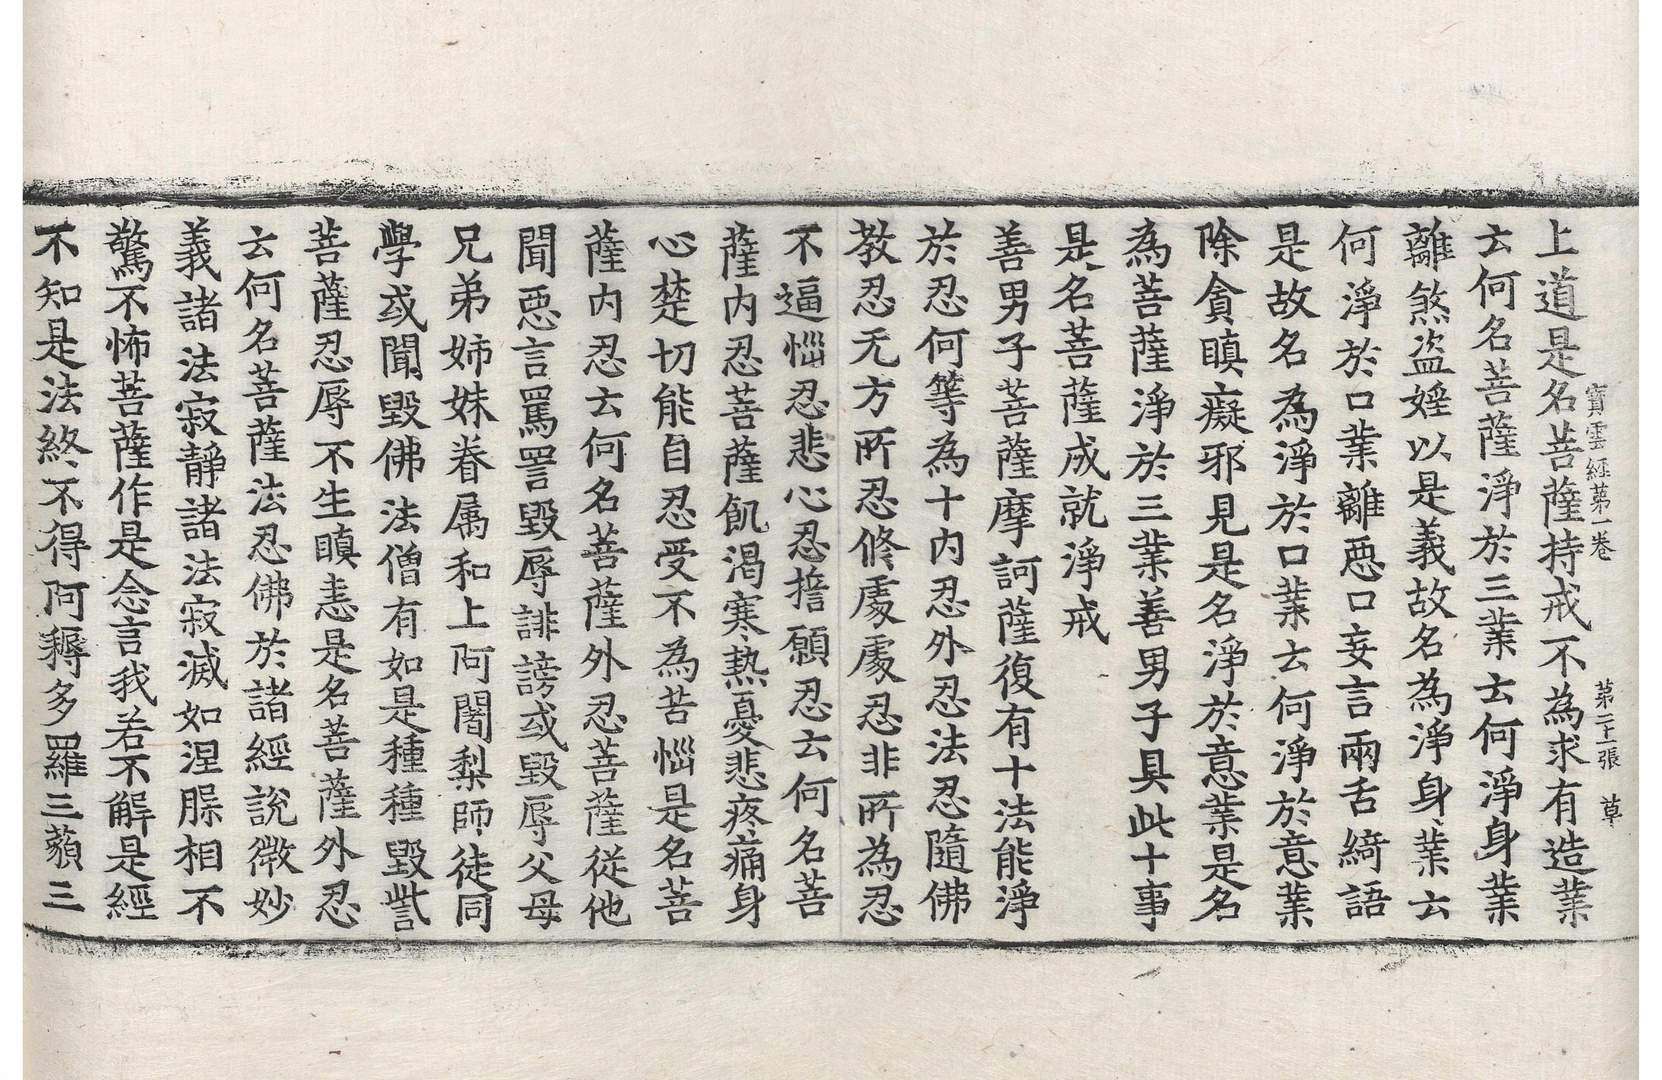 寶雲經第一卷 第二十張 草
上道是名菩薩持戒不為求有造業
云何名菩薩淨於三業云何淨身業
離煞盗婬以是義故名為淨身業云
何淨於口業離惡口妄言兩舌綺語
是故名為淨於口業云何淨於意業
除貪瞋癡邪見是名淨於意業是名
為菩薩淨於三業善男子具此十事
是名菩薩成就淨戒
善男子菩薩摩訶薩復有十法能淨
於忍何等為十内忍外忍法忍隨佛
教忍无方所忍修處處忍非所為忍
不逼惱忍悲心忍擔願忍云何名菩
薩内忍菩薩飢渴寒熱憂悲疼痛身
心楚切能自忍受不為苦惱是名菩
薩内忍云何名菩薩外忍菩薩從他
聞惡言罵詈毀辱誹謗或毀辱父母
兄弟姉妹眷属和上阿闍梨師徒同
學或聞毀佛法僧有如是種種毀呰
菩薩忍辱不生瞋恚是名菩薩外忍
云何名菩薩法忍佛於諸經說微妙
義諸法寂靜諸法寂滅如涅槃相不
驚不怖菩薩作是念言我若不解是經
不知是法終不得阿耨多羅三藐三